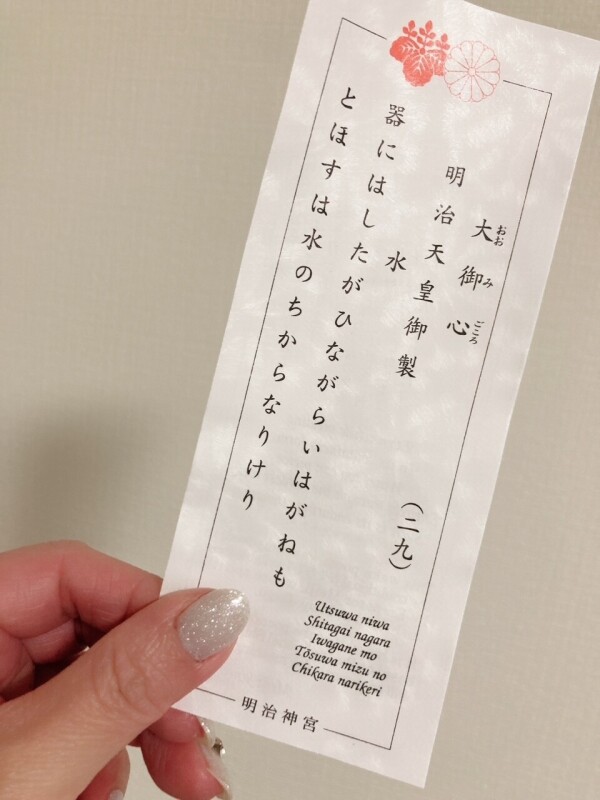 大御心
おおみごころ
明治天皇御製
水
(二九)
器にはしたがひながらいはがねも
とほすは水のちからなりけり
Utsuwa niwa
Shitagai nagara
Iwagane mo
Tōsuwa mizu no
Chikara narikeri
明治神宮